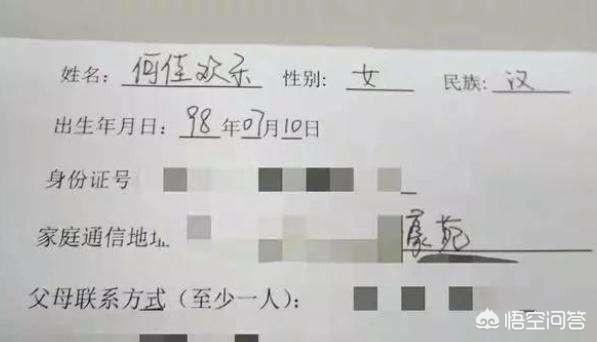 姓名: 何佳欢乐 性别: 女 民族: 汉
出生年月日: 98 年 07 月 10 日
身份证号
家庭通信地址 家苑
父母联系方式 (至少一人):
悟空问答